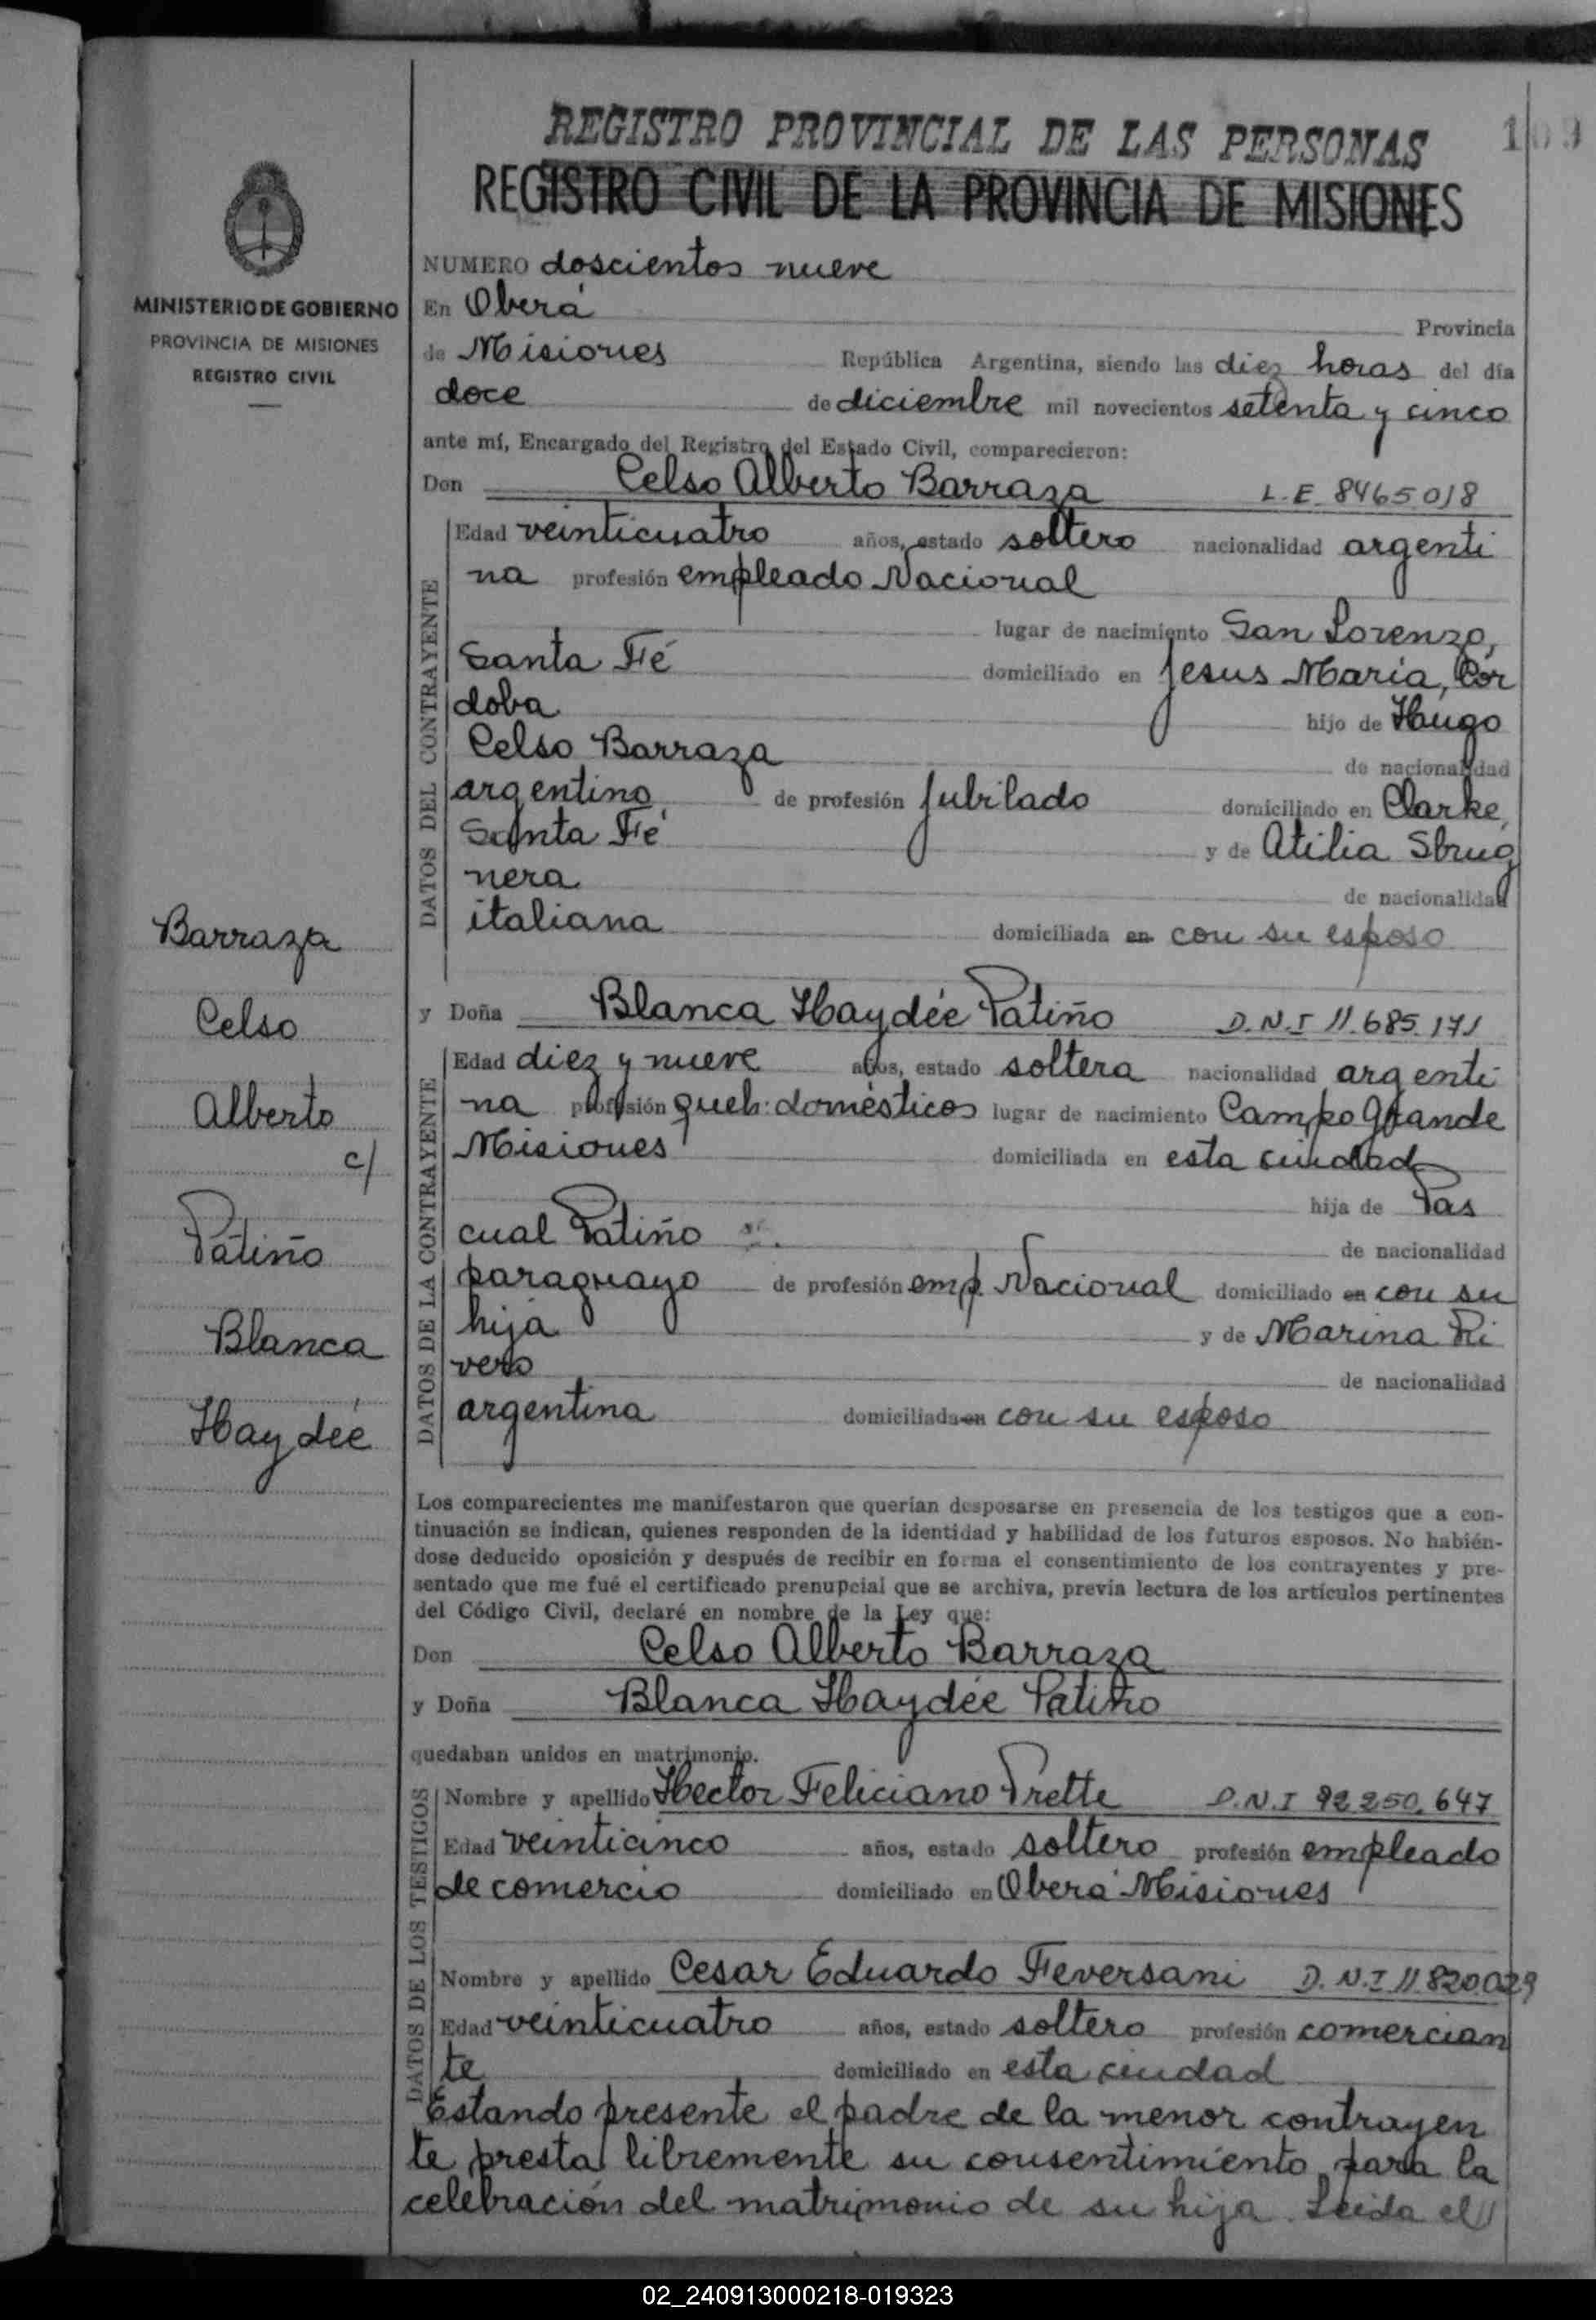 REGISTRO PROVINCIAL DE LAS PERSONAS
109
REGISTRO CIVIL DE LA PROVINCIA DE MISIONES
MINISTERIO DE GOBIERNO
PROVINCIA DE MISIONES
REGISTRO CIVIL
NUMERO doscientos nueve
En Oberá Provincia
de Misiones República Argentina, siendo las diez horas del día
doce de diciembre mil novecientos setenta y cinco
ante mí, Encargado del Registro del Estado Civil, comparecieron:
Don Celso Alberto Barraza L.E. 8465018
DATOS DEL CONTRAYENTE
Edad veinticuatro años, estado soltero nacionalidad argenti
na profesión empleado Nacional
lugar de nacimiento San Lorenzo,
Santa Fé domiciliado en Jesus María, Cór
doba hijo de Hugo
Celso Barraza de nacionalidad
argentino de profesión jubilado domiciliado en Clarke,
Santa Fé y de Atilia Sbrug
nera de nacionalidad
italiana domiciliada en con su esposo
y Doña Blanca Haydée Patiño D.N.I 11.685.171
DATOS DE LA CONTRAYENTE
Edad diez y nueve años, estado soltera nacionalidad argenti
na profesión queh: domésticos lugar de nacimiento Campo Grande
Misiones domiciliada en esta ciudad
hija de Pas
cual Patiño de nacionalidad
paraguayo de profesión emp. Nacional domiciliado en con su
hija y de Marina Ri
vero de nacionalidad
argentina domiciliada en con su esposo
Barraza
Celso
Alberto
c/
Patiño
Blanca
Haydée
Los comparecientes me manifestaron que querían desposarse en presencia de los testigos que a con-
tinuación se indican, quienes responden de la identidad y habilidad de los futuros esposos. No habién-
dose deducido oposición y después de recibir en forma el consentimiento de los contrayentes y pre-
sentado que me fué el certificado prenupcial que se archiva, previa lectura de los artículos pertinentes
del Código Civil, declaré en nombre de la Ley que:
Don Celso Alberto Barraza
y Doña Blanca Haydée Patiño
quedaban unidos en matrimonio.
DATOS DE LOS TESTIGOS
Nombre y apellido Hector Feliciano Prette D.N.I 92.250.647
Edad veinticinco años, estado soltero profesión empleado
de comercio domiciliado en Oberá Misiones
Nombre y apellido Cesar Eduardo Feversani D.N.I 11.820.029
Edad veinticuatro años, estado soltero profesión comercian
te domiciliado en esta ciudad
Estando presente el padre de la menor contrayen
te presta libremente su consentimiento para la
celebración del matrimonio de su hija. Leida el
02_240913000218-019323